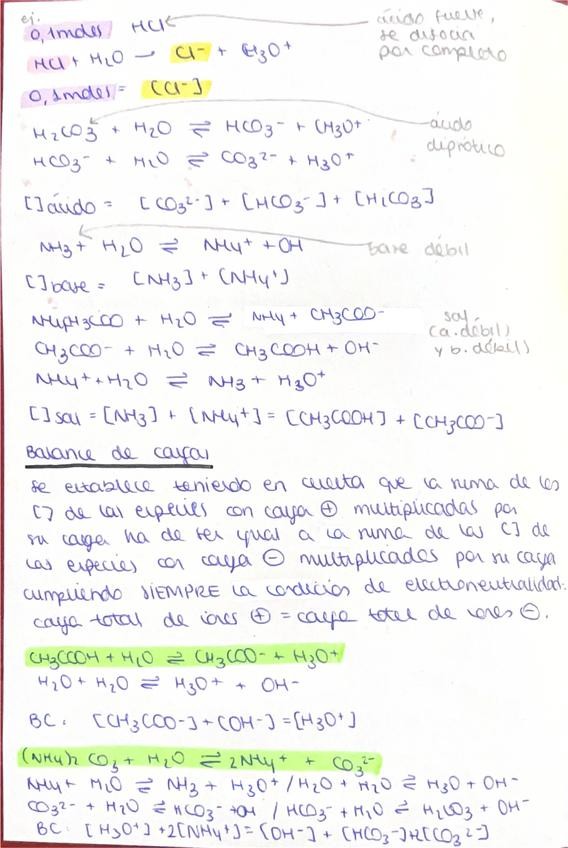 ej.
0,1moles HCl
ácido fuerte,
se disocia
por completo
HCl + H2O → Cl- + H3O+
0,1moles = [Cl-]
H2CO3 + H2O ⇌ HCO3- + H3O+
ácido
diprótico
HCO3- + H2O ⇌ CO3 2- + H3O+
[ ]ácido = [CO3 2-] + [HCO3-] + [H2CO3]
NH3 + H2O ⇌ NH4+ + OH
base débil
[ ]base = [NH3] + [NH4+]
NH4CH3COO + H2O ⇌ NH4 + CH3COO-
sal.
(a.débil)
y b.débil)
CH3COO- + H2O ⇌ CH3COOH + OH-
NH4+ + H2O ⇌ NH3 + H3O+
[ ]sal = [NH3] + [NH4+] = [CH3COOH] + [CH3COO-]
Balance de cargas
Se establece teniendo en cuenta que la suma de las
[ ] de las especies con carga ⊕ multiplicadas por
su carga ha de ser igual a la suma de las [ ] de
las especies con carga ⊖ multiplicadas por su carga
cumpliendo SIEMPRE la condición de electroneutralidad:
carga total de iones ⊕ = carga total de iones ⊖.
CH3COOH + H2O ⇌ CH3COO- + H3O+
H2O + H2O ⇌ H3O+ + OH-
BC: [CH3COO-] + [OH-] = [H3O+]
(NH4)2 CO3 + H2O ⇌ 2NH4+ + CO3 2-
NH4+ H2O ⇌ NH3 + H3O+ / H2O + H2O ⇌ H3O + OH-
CO3 2- + H2O ⇌ HCO3- + OH / HCO3- + H2O ⇌ H2CO3 + OH-
BC: [H3O+] + 2[NH4+] = [OH-] + [HCO3-] + 2[CO3 2-]